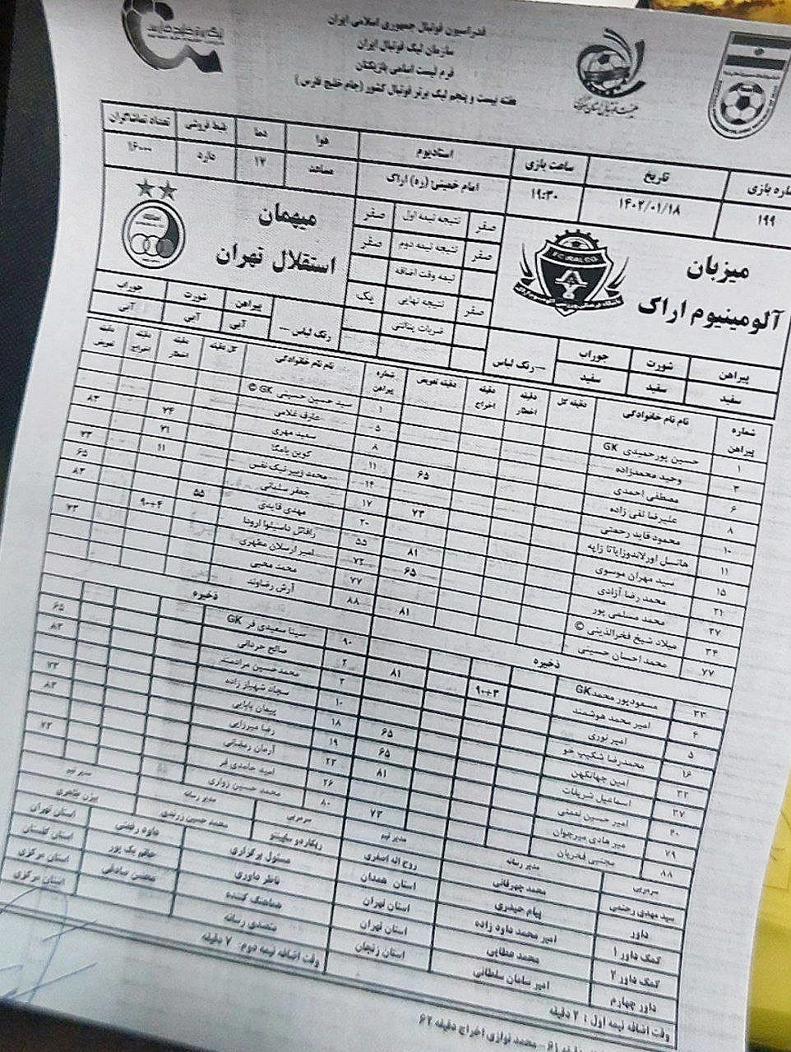 فدراسیون فوتبال جمهوری اسلامی ایران
سازمان لیگ فوتبال ایران
فرم لیست اسامی بازیکنان
هفته بیست و پنجم لیگ برتر فوتبال کشور (جام خلیج فارس)
شماره بازی تاریخ ساعت بازی استادیوم هوا دما بلیط فروشی تعداد تماشاگران
۱۹۹ ۱۴۰۲/۰۱/۱۸ ۱۹:۳۰ امام خمینی (ره) اراک مساعد ۱۷ دارد
میزبان
آلومینیوم اراک
صفر نتیجه نیمه اول صفر
صفر نتیجه نیمه دوم صفر
نیمه وقت اضافه
صفر نتیجه نهایی یک
ضربات پنالتی
میهمان
استقلال تهران
پیراهن شورت جوراب رنگ لباس
سفید سفید سفید
رنگ لباس پیراهن شورت جوراب
آبی آبی آبی
شماره پیراهن نام نام خانوادگی دقیقه گل دقیقه اخطار دقیقه اخراج دقیقه تعویض
۱ حسین پورحمیدی GK
۳ وحید محمدزاده
۶ مصطفی احمدی ۶۵
۸ علیرضا نقی زاده
۱۰ محمود قاید رحمتی ۷۳
۱۱ هانسل اورلاندوزاپاتا زاپه
۱۵ سید مهران موسوی ۸۱
۲۱ محمد رضا آزادی ۶۵
۲۷ محمد مسلمی پور
۳۴ میلاد شیخ فخرالدینی ©
۷۷ محمد احسان حسینی
شماره پیراهن نام نام خانوادگی گل دقیقه دقیقه اخطار دقیقه اخراج دقیقه تعویض
۱ سید حسین حسینی GK ©
۵ عارف غلامی ۲۴ ۸۳
۸ سعید مهری ۳۱
۱۱ کوین یامگا ۱۱ ۷۳
۱۴ محمد زبیر نیک نفس ۶۵
۱۷ جعفر سلمانی ۸۳
۲۰ مهدی قایدی ۵۵
۵۵ رافائل داسیلوا آرودا ۹۰+۴ ۷۳
۷۲ امیر ارسلان مطهری
۷۷ محمد محبی
۸۸ آرش رضاوند
ذخیره
۳۳ مسعودپور محمد GK
۴ امیر محمد هوشمند
۵ امیر نوری
۱۶ محمدرضا شکیب خو
۳۲ امین جهانکهن
۳۷ اسماعیل شریفات
۴۰ امیر حسین نعمتی
۷۹ میر هادی میرجوان
۸۸ مجتبی فخریان
ذخیره
۹۰ سینا سعیدی فر GK
۲ صالح حردانی
۳ محمدحسین مرادمند
۱۰ سجاد شهباز زاده
۱۸ پیمان بابایی
۱۹ رضا میرزایی
۲۳ آرمان رمضانی
۲۶ امید حامدی فر
۸۰ محمد حسین زواری
سرمربی مدیر رسانه مدیر تیم
سید مهدی رحمتی محمد چهرقانی روح اله اصغری
سرمربی مدیر رسانه مدیر تیم
ریکاردو ساپینتو محمد حسین زرندی بیژن طاهری
داور پیام حیدری استان همدان مسئول برگزاری داود رفیعی استان تهران
کمک داور ۱ امیر محمد داود زاده استان تهران ناظر داوری خانم بک پور استان گلستان
کمک داور ۲ محمد عطایی استان تهران هماهنگ کننده محسن صادقی استان مرکزی
داور چهارم امیر سامان سلطانی استان زنجان متصدی رسانه استان مرکزی
وقت اضافه نیمه اول : ۲ دقیقه وقت اضافه نیمه دوم: ۷ دقیقه
محمد نوازی اخراج دقیقه ۶۲